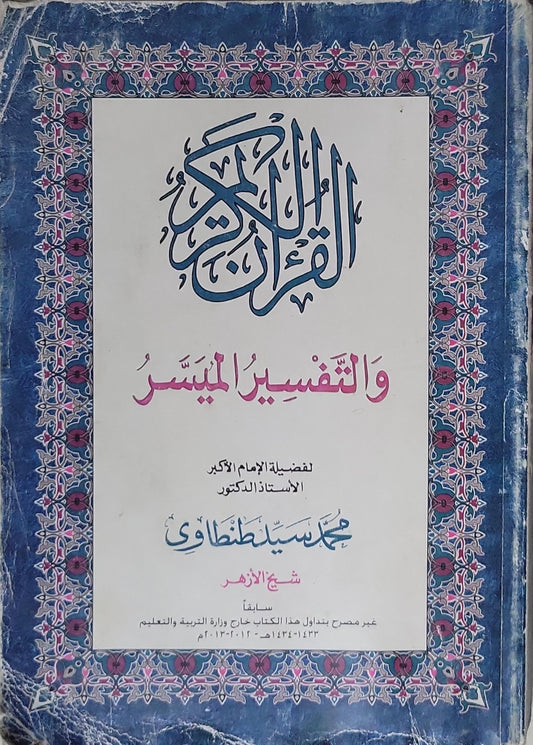 القرآن الكريم
والتَّفْسِيرُ الميَسَّرُ
لفضيلة الإمام الأكبر
الأستاذ الدكتور
محمَّد سَيِّد طَنْطَاوِى
شيخ الأزهر
سابقاً
غير مصرح بتداول هذا الكتاب خارج وزارة التربية والتعليم
١٤٣٣-١٤٣٤هـ - ٢٠١٢-٢٠١٣م